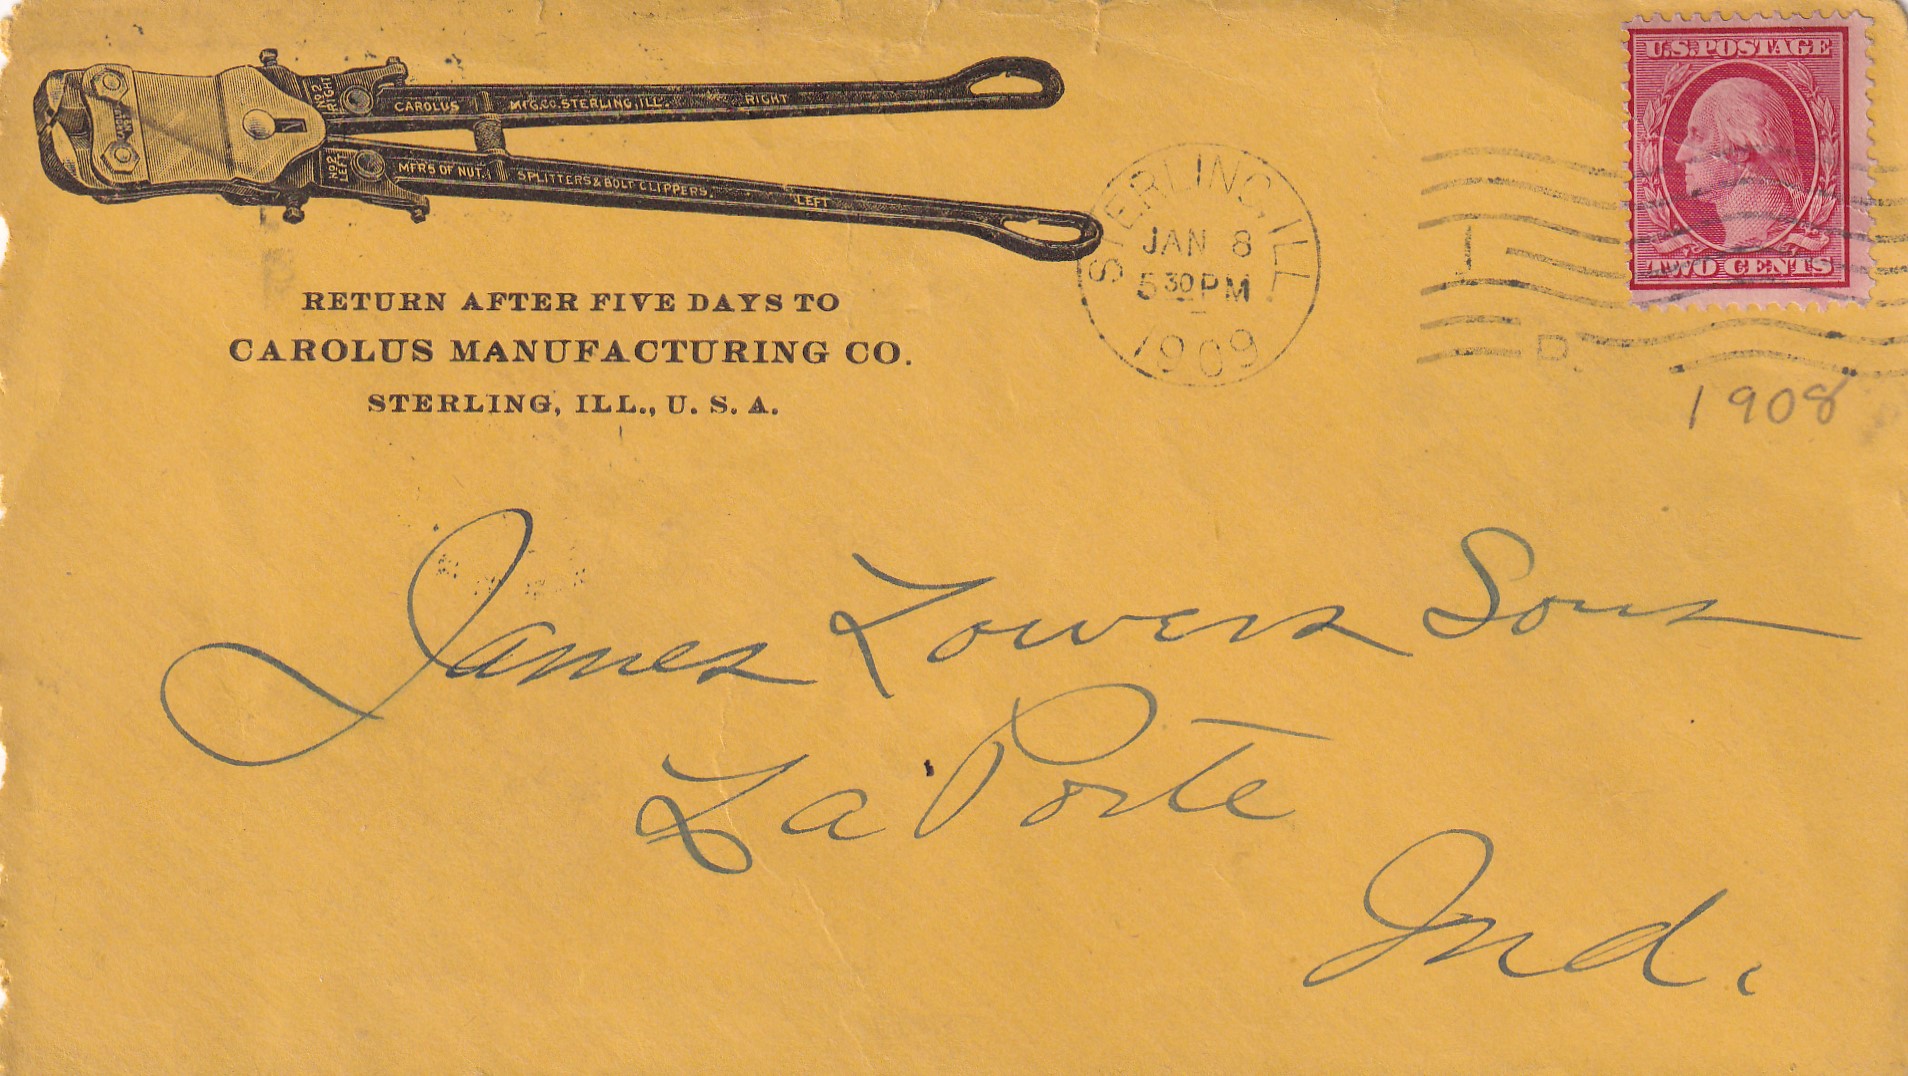 CAROLUS MFG.CO.STERLING,ILL. RIGHT
No 2 RIGHT
No 2 LEFT
MFRS OF NUT. SPLITTERS & BOLT CLIPPERS. LEFT
RETURN AFTER FIVE DAYS TO
CAROLUS MANUFACTURING CO.
STERLING, ILL., U. S. A.
STERLING, ILL.
JAN 8
5 30 PM
1909
U.S. POSTAGE
TWO CENTS
D.
1908
James Lowers Sons
La Porte
Ind.